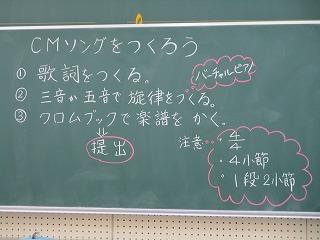 CMソングをつくろう
① 歌詞をつくる。
バーチャルピアノ
② 三音か五音で旋律をつくる。
③ クロムブックで楽譜をかく。
提出
注意
・4/4
・4小節
・1段2小節